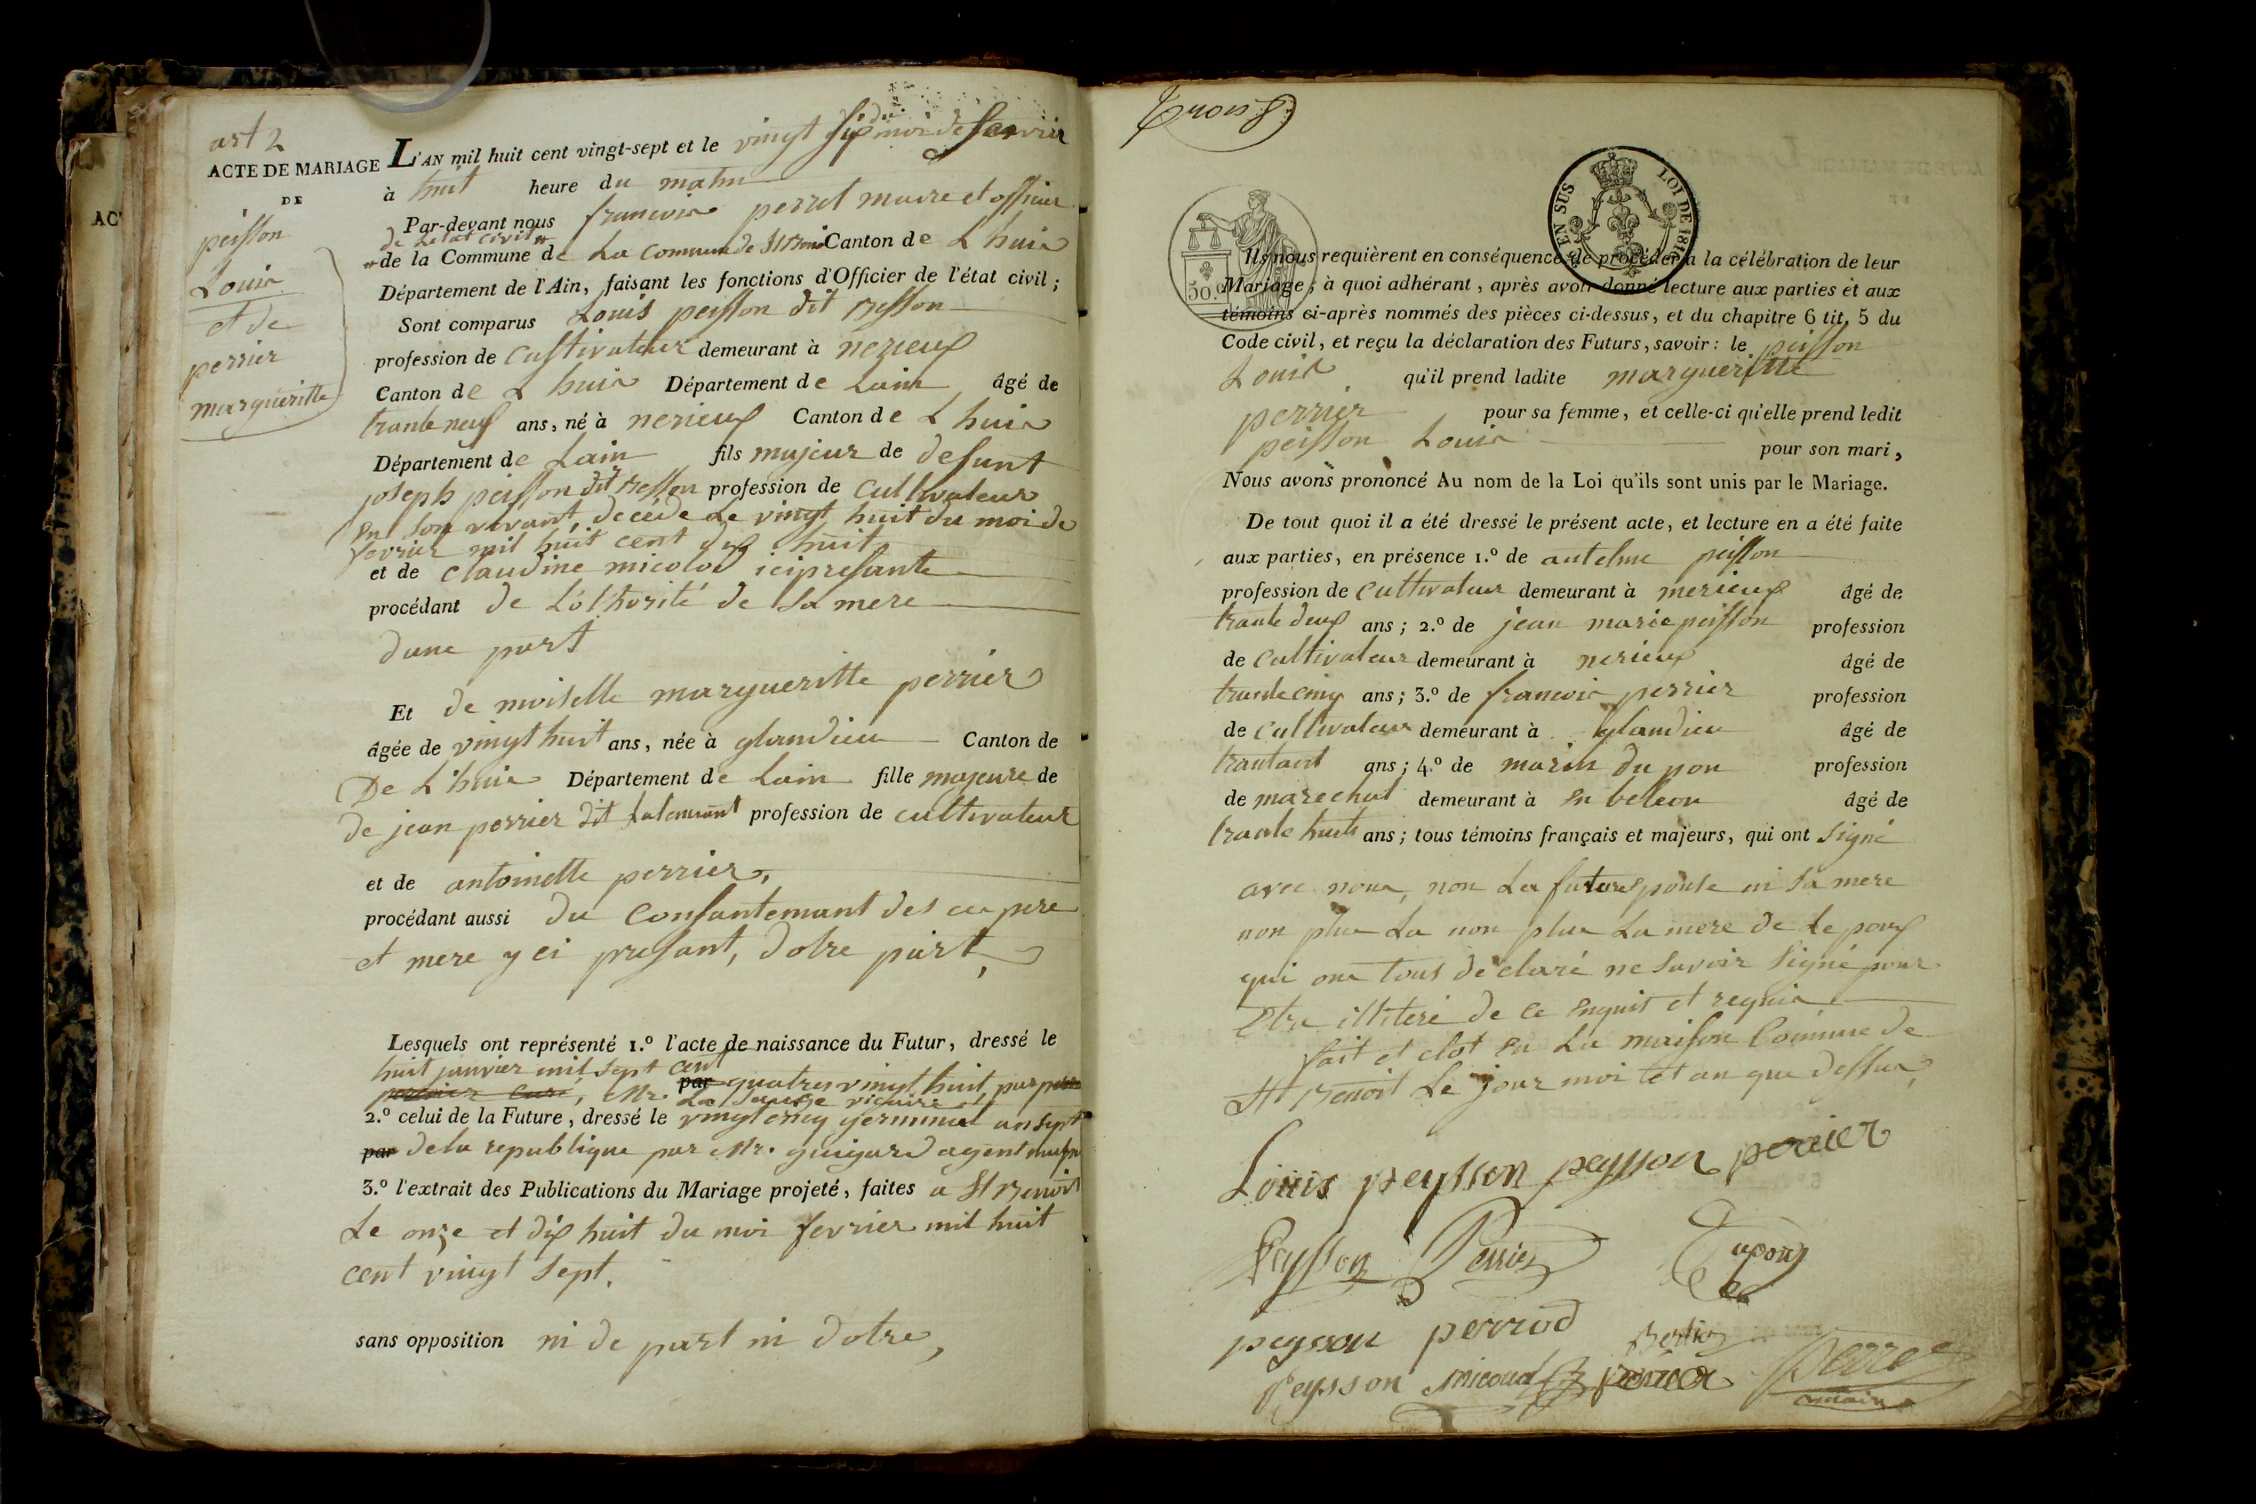 art 2
ACTE DE MARIAGE
DE
peisson
Louis
et de
perrier
margueritte
L'AN mil huit cent vingt-sept et le vingt six du moi de fevrier
à huit heure du matin
Par-devant nous francois perret maire et officier
de Létat civil
de la Commune de La Commune de St Benoi Canton de L huis
Département de l'Ain, faisant les fonctions d'Officier de l'état civil ;
Sont comparus Louis peisson dit Besson
profession de Cultivateur demeurant à nerieux
Canton de L huis Département de Lain âgé de
trante neuf ans, né à nerieux Canton de L huis
Département de Lain fils majeur de defunt
joseph peisson dit Besson profession de Cultivateur
en son vivant, décéde Le vingt huit du moi de
fevrier mil huit cent dix huit
et de claudine micolod ici presante
procédant de Lothorité de sa mere
dune part
Et de moiselle margueritte perrier
âgée de vingt huit ans, née à glandieu Canton de
De L'huis Département de Lain fille majeure de
de jean perrier dit profession de cultivateur
et de antoinette perrier,
procédant aussi du Consantemant des ces pere
et mere y ci presant, dotre part,
Lesquels ont représenté 1.º l'acte de naissance du Futur, dressé le
huit janvier mil sept cent
par quatres vingt huit, par
Mr. vicaire
2.º celui de la Future, dressé le vingt cinq germinal an sept
par dela republique par Mr. guigard agent
3.º l'extrait des Publications du Mariage projeté, faites a St Benoit
Le onze et dix huit du moi fevrier mil huit
cent vingt sept.
sans opposition ni de part ni dotre,
Trois
EN SUS
LOI DE 1816
50.c
Ils nous requièrent en conséquence de procéder à la célébration de leur
Mariage ; à quoi adhérant, après avoir donné lecture aux parties et aux
témoins ci-après nommés des pièces ci-dessus, et du chapitre 6 tit. 5 du
Code civil, et reçu la déclaration des Futurs, savoir : le peisson
Louis qu'il prend ladite margueritte
perrier pour sa femme, et celle-ci qu'elle prend ledit
peisson Louis pour son mari,
Nous avons prononcé Au nom de la Loi qu'ils sont unis par le Mariage.
De tout quoi il a été dressé le présent acte, et lecture en a été faite
aux parties, en présence 1.º de antelme peisson
profession de Cultivateur demeurant à merieux âgé de
trante deux ans ; 2.º de jean marie peisson profession
de Cultivateur demeurant à nerieux âgé de
trante cinq ans ; 3.º de francois perrier profession
de Cultivateur demeurant à glandieu âgé de
ans ; 4.º de marin du pon profession
de marechal demeurant à âgé de
trante huit ans ; tous témoins français et majeurs, qui ont signé
avec nous, non La future epouse ni sa mere
non plus La non plus La mere de Le poux
qui ons tous déclaré ne savoir signé pour
Etre illiteré de ce enquit et requis
fait et clot en La maison Commune de
St Benoit Le jour moi et an que dessus,
Louis peysson peysson perrier
Peysson Perrier Dupont
peyson perrod Bertier
Peysson micoud perrier Perret
maire